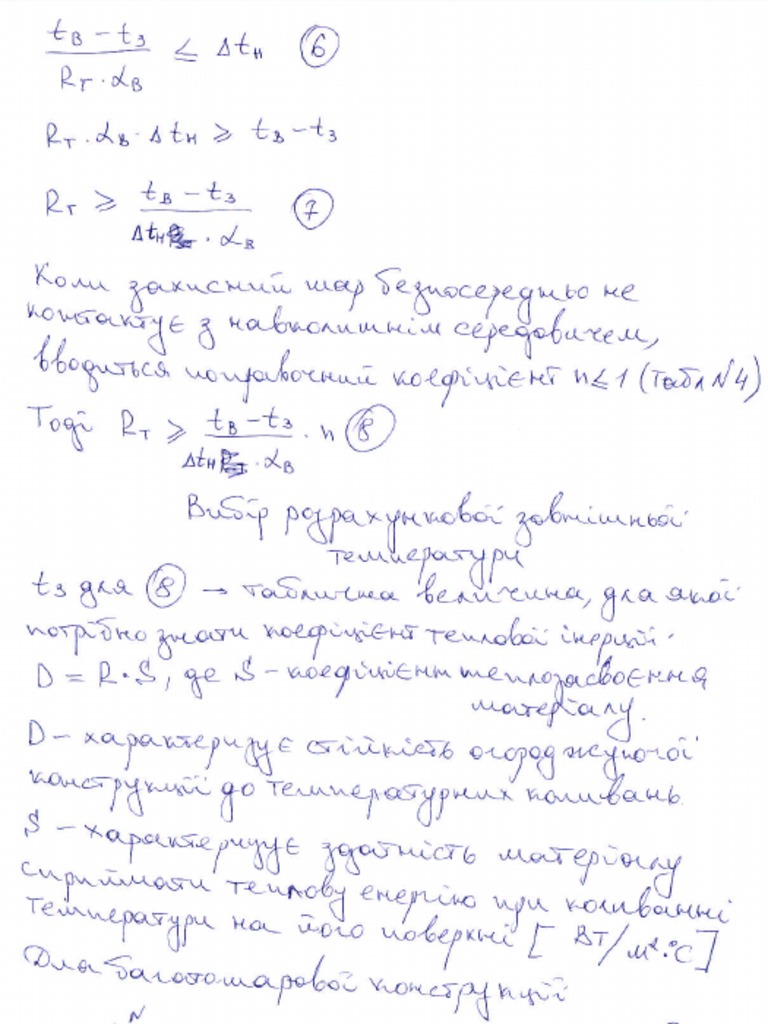 tв − tз / Rт · αв ≤ Δtн (6)
Rт · αв · Δtн ≥ tв − tз
Rт ≥ tв − tз / Δtн · αв (7)
Коли захисний шар безпосередньо не
контактує з навколишнім середовичем,
вводиться поправочний коефіцієнт n ≤ 1 (табл N4)
Тоді Rт ≥ tв − tз / Δtн · αв · n (8)
Вибір розрахункової зовнішньої
температури
tз для (8) → таблична величина, для якої
потрібно знати коефіцієнт теплової інерції.
D = R · S, де S – коефіцієнт теплозасвоєння
матеріалу.
D – характеризує стійкість огороджуючої
конструкції до температурних коливань.
S – характеризує здатність матеріалу
сприймати теплову енергію при коливанні
температури на його поверхні [Вт/м²·°С]
Для багатошарової конструкції
N